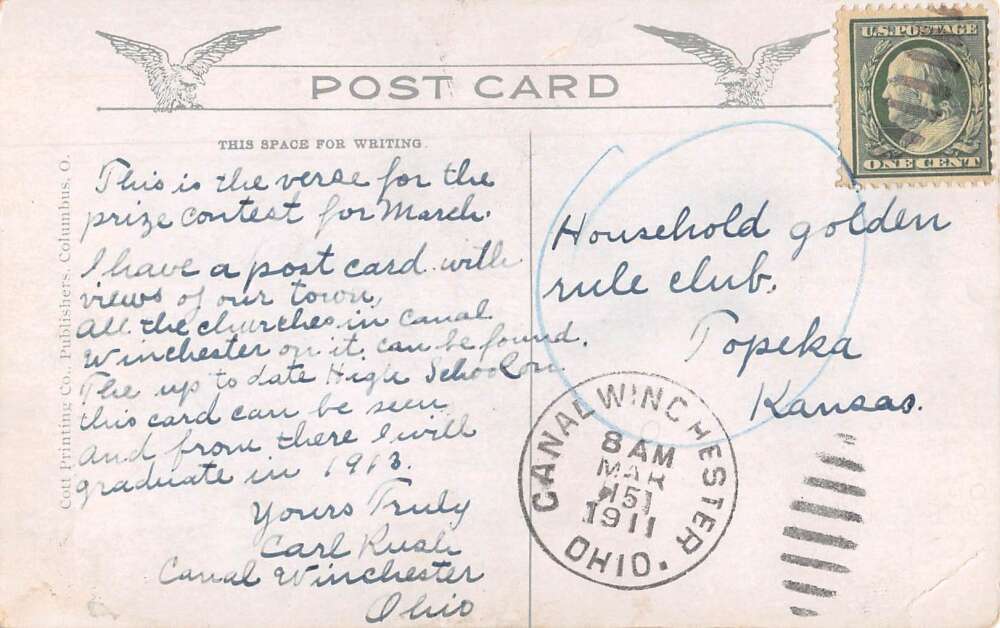 POST CARD
U.S. POSTAGE
ONE CENT
THIS SPACE FOR WRITING.
Cott Printing Co., Publishers, Columbus, O.
This is the verse for the
prize contest for March.
I have a post card with
views of our town,
All the churches in Canal
Winchester on it can be found.
The up to date High School on
this card can be seen
And from there I will
graduate in 1913.
Yours Truly
Carl Rush
Canal Winchester
Ohio
Household golden
rule club.
Topeka
Kansas.
CANAL WINCHESTER
8 AM
MAR
1911
OHIO.